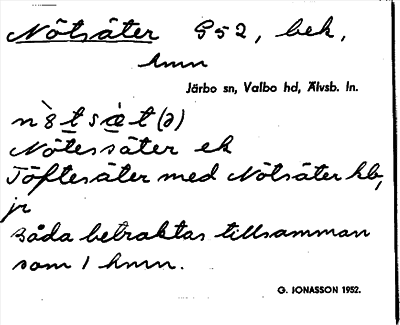 Nötsäter 952, bek,
hmn
Järbo sn, Valbo hd, Älvsb. ln.
n ȍ t s æ̀ t (ə)
Nötessäter ek
Töftesäter med Nötsäter hb,
jr
Båda betraktas tillsamman
som 1 hmn.
G. JONASSON 1952.